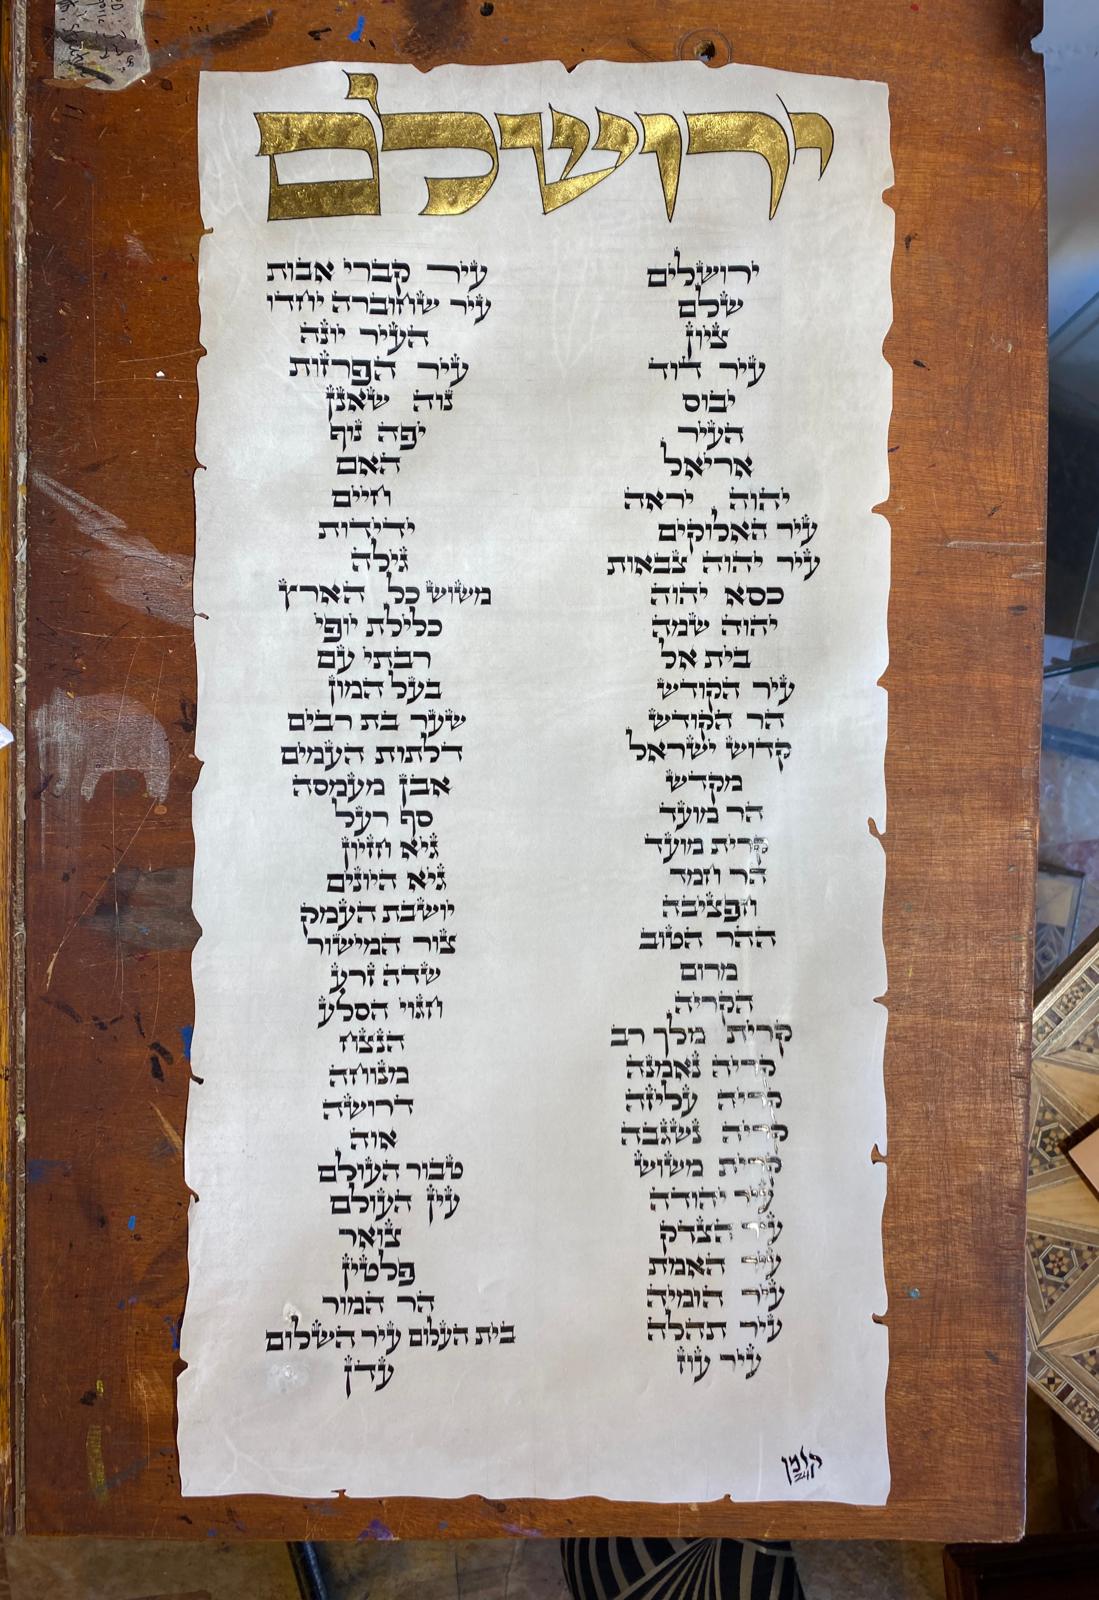 ירושלם
ירושלים
שלם
ציון
עיר דוד
יבוס
העיר
אריאל
יהוה יראה
עיר האלוקים
עיר יהוה צבאות
כסא יהוה
יהוה שמה
בית אל
עיר הקודש
הר הקודש
קדוש ישראל
מקדש
הר מועד
קרית מועד
הר חמד
חפציבה
ההר הטוב
מרום
הקריה
קרית מלך רב
קריה נאמנה
קריה עליזה
קריה נשגבה
קרית משוש
עיר יהודה
עיר הצדק
עיר האמת
עיר הומיה
עיר תהלה
עיר עוז
עיר קברי אבות
עיר שחוברה יחדו
העיר יונה
עיר הפרזות
נוה שאנן
יפה נוף
האם
וחיים
ידידות
גילה
משוש כל הארץ
כלילת יופי
רבתי עם
בעל המון
שער בת רבים
דלתות העמים
אבן מעמסה
סף רעל
גיא חזיון
גיא היונים
יושבת העמק
צור המישור
שדה זרע
חגוי הסלע
הנצח
מנוחה
דרושה
אוה
טבור העולם
עין העולם
צואר
פלטין
הר המור
בית העלום עיר השלום
עדן
24